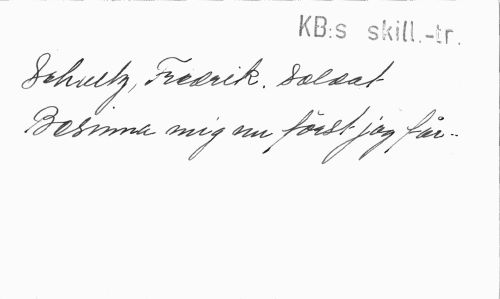 KB:s skill.-tr.
Schultz, Fredrik. Soldat
Besinna mig nu först jag får..